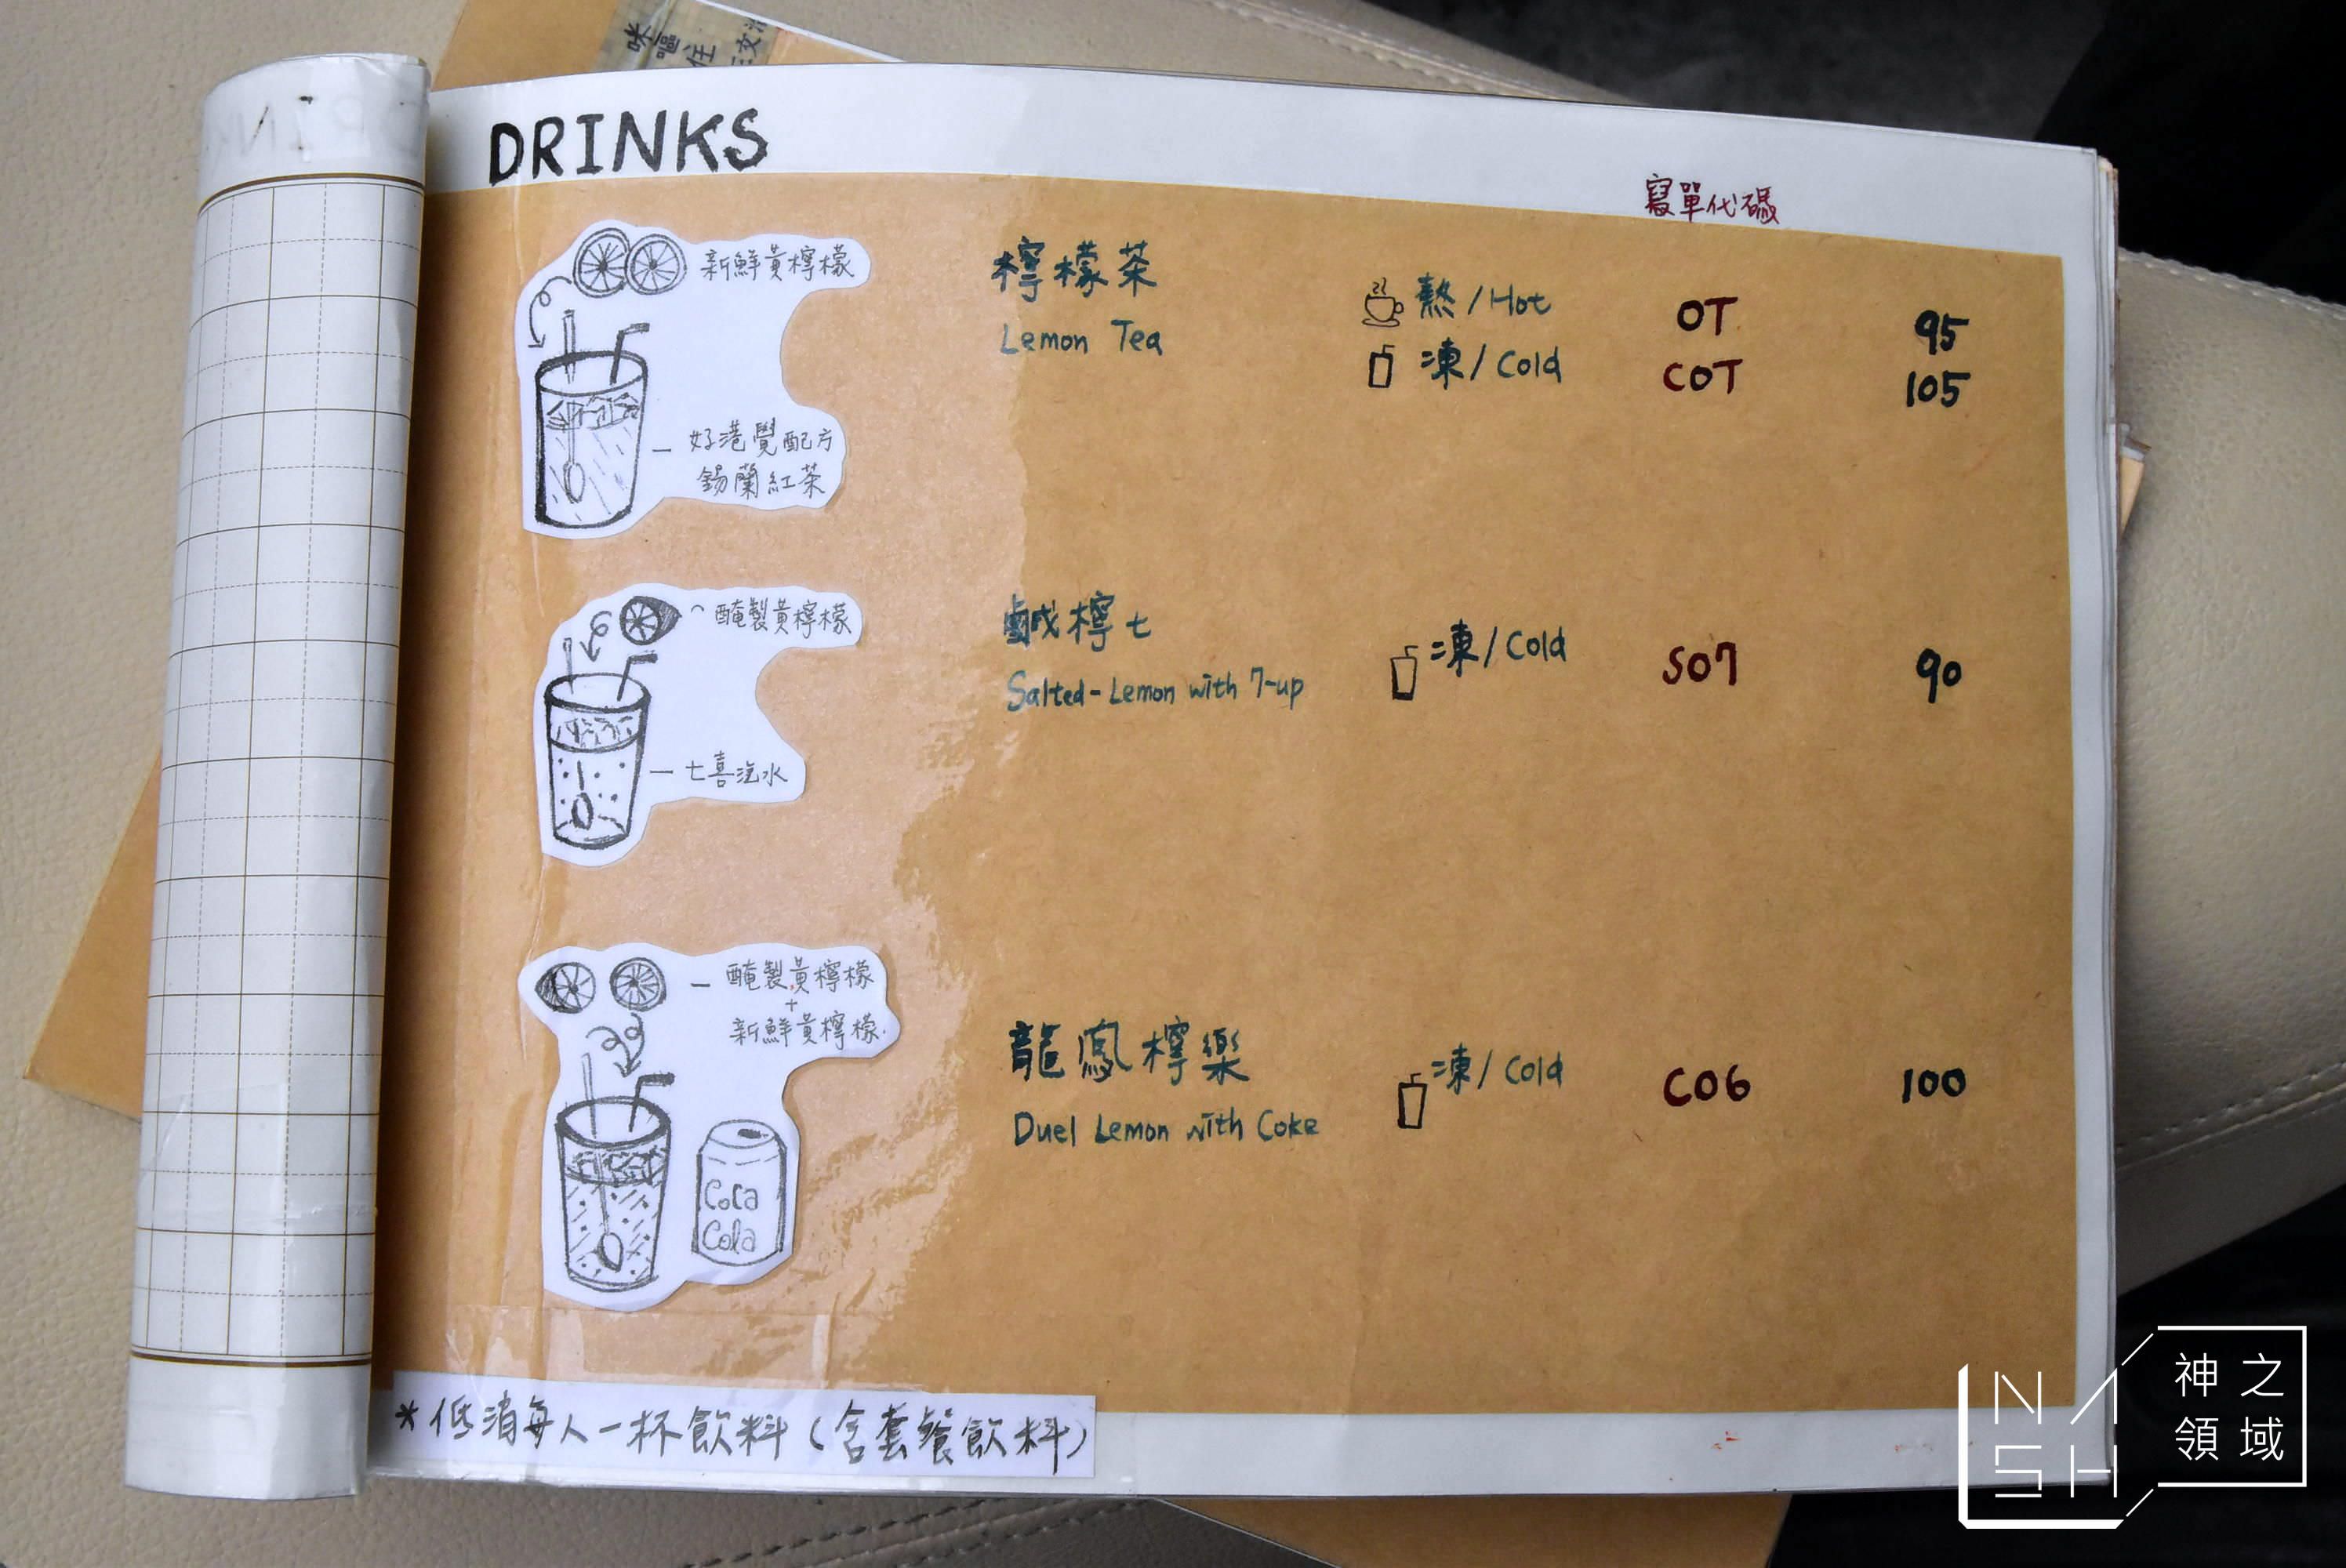 DRINKS
寫單代碼
新鮮黃檸檬
好港覺配方
錫蘭紅茶
檸檬茶
Lemon Tea
熱/Hot OT 95
凍/Cold COT 105
醃製黃檸檬
七喜汽水
鹹檸七
Salted-Lemon with 7-up
凍/Cold SO7 90
醃製黃檸檬
+
新鮮黃檸檬
Coca
Cola
龍鳳檸樂
Duel Lemon with Coke
凍/Cold CO6 100
*低消每人一杯飲料(含套餐飲料)
NASH
神之
領域